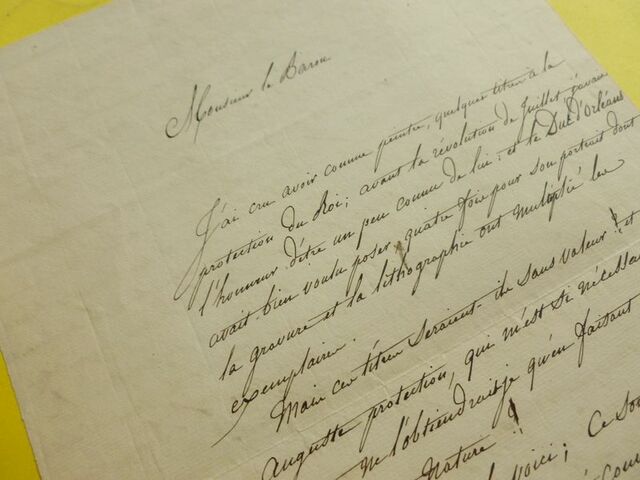 Monsieur le Baron
J'ai cru avoir comme peintre, quelques titres à la
protection du Roi; avant la révolution de Juillet j'avais
l'honneur d'être un peu connu de lui: et le Duc d'Orléans
avait bien voulu poser quatre fois pour son portrait dont
la gravure et la lithographie ont multiplié les
exemplaires.
Mais ces titres seraient-ils sans valeur? et
auguste protection, qui m'est si nécessai
ne l'obtiendrait-je qu'en faisant
Nature?
voici; Ce so